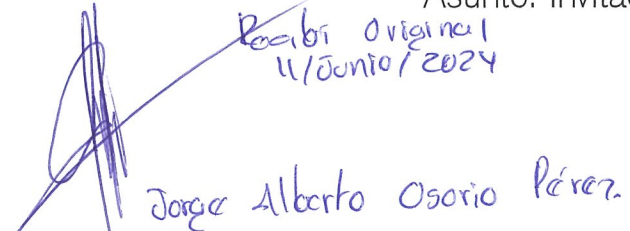 Asunto: Invita
Recibí Original
11/Junio/2024
Jorge Alberto Osorio Pérez.